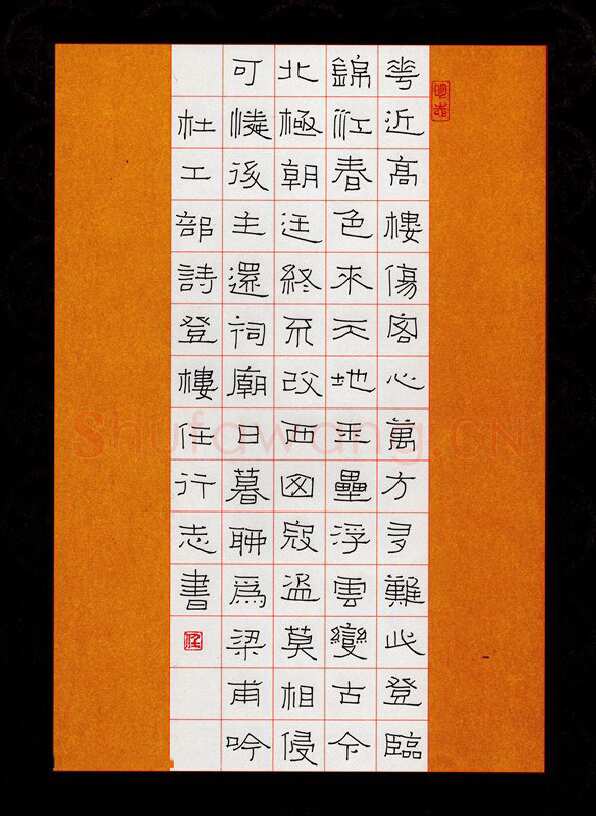 華近高樓傷客心萬方多難此登臨
錦江春色來天地玉壘浮雲變古今
北極朝廷終不改西山寇盜莫相侵
可憐後主還祠廟日暮聊爲梁甫吟
杜工部詩登樓任行志書
Shufawang.CN